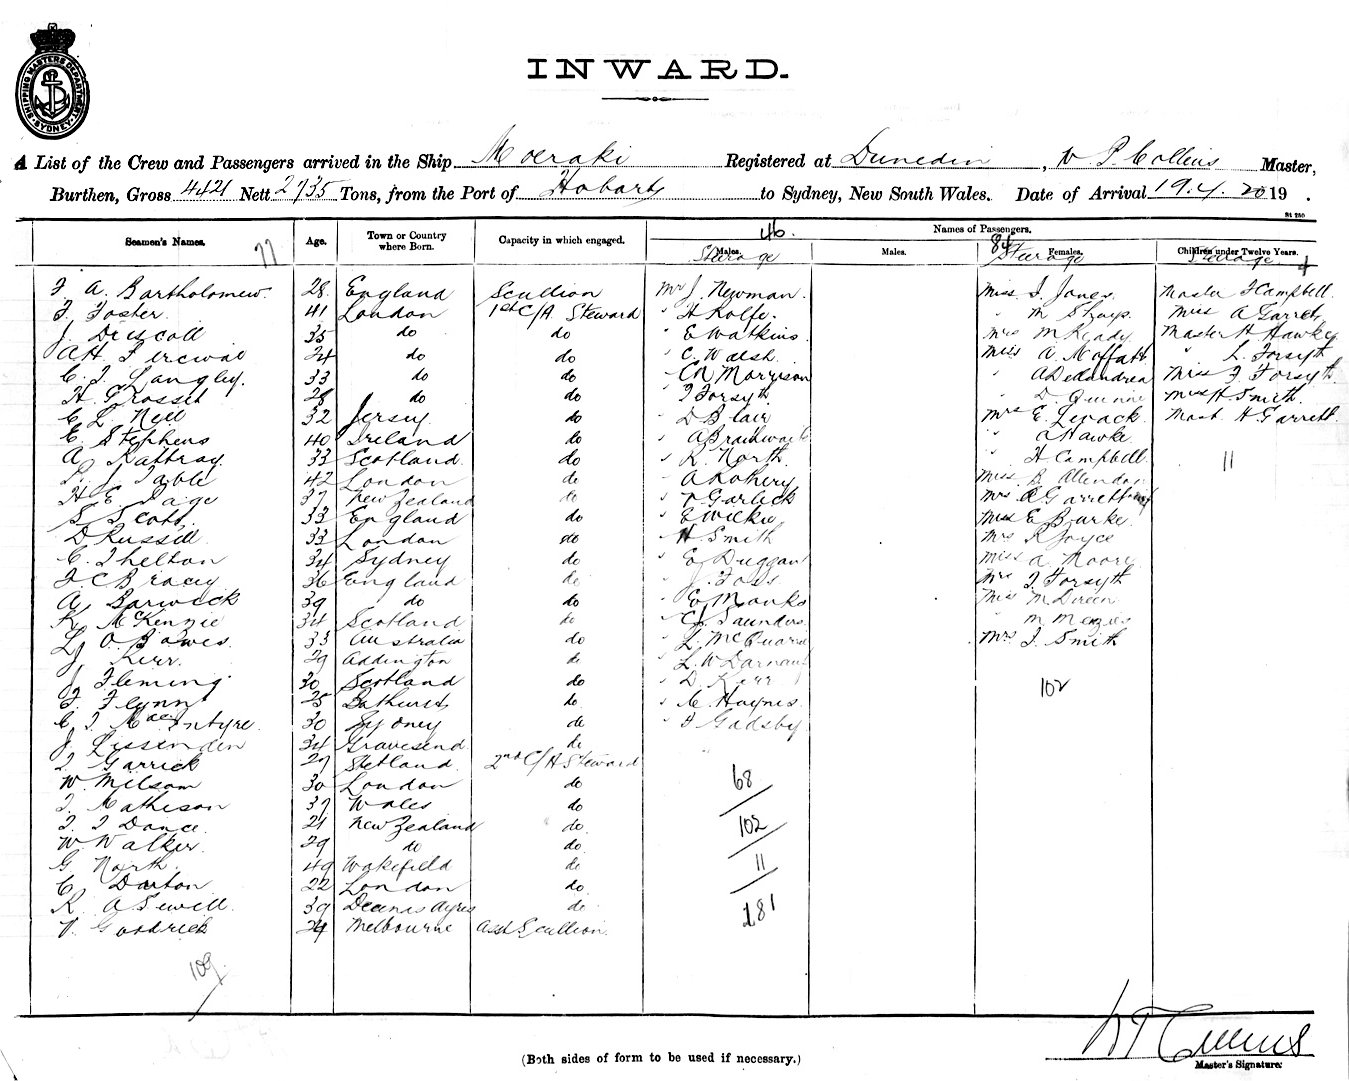 SHIPPING MASTERS DEPARTMENT SYDNEY
INWARD.
A List of the Crew and Passengers arrived in the Ship Moeraki Registered at Dunedin, W P Collins Master,
Burthen, Gross 4421 Nett 2735 Tons, from the Port of Hobart to Sydney, New South Wales. Date of Arrival 19.4.20 19 .
St 250
Seamen's Names. 77 Age. Town or Country where Born. Capacity in which engaged. Names of Passengers.
46. Males. Steerage Males. 84 Females. Steerage Children under Twelve Years. Steerage 4
F A. Bartholomew. 28 England Scullion Mr J. Newman. Miss I. Jones. Master F Campbell.
F. Foster. 41 London 1st C/A Steward " H Rolfe. " M Sharp. Miss A Garrett
J. Driscoll 35 do do " E Watkins. Mrs M Ready Master H Hawke
A H. Percival 24 do do " C. Walsh. Miss A. Moffatt " L. Forsyth
C. J. Langley. 33 do do " C R Morrison " A Miss F Forsyth
H. Grosset 28 do do " F Forsyth " D. Miss H Smith.
C. L. Nell 32 Jersey do " D Blair Mrs E. Mast H. Garrett.
E. Stephens 40 Ireland do " A Braithwaite " A Hawke
A. Rattray. 33 Scotland. do " R. North. " H Campbell. 11
P. J. Table 42 London do " A Miss B Allendon
H. E. Page 37 New Zealand do " T Garlick Mrs A Garrett
S. Scott. 33 England do " E Wickie Miss E Burke.
D Russell. 33 London do " H. Smith Mrs R Joyce
C. Shelton 34 Sydney do " E Duggan Miss A Moore
F. C Bracey 36 England do " J. Foss Mrs F Forsyth
A. Barwick 39 do do " E Monks Miss M
K. McKenzie 34 Scotland do " C J Saunders. " M Menzies
L. O. Bowes. 33 Australia do " L. McGuare Mrs J. Smith
J. Kerr. 29 Addington do " L. W
J. Fleming 30 Scotland do " D. Kerr 102
F. Flynn 25 Bathurst do " C. Haynes.
C. J. MacIntyre. 30 Sydney do " F Gadsby.
J. Lissenden 34 Gravesend do
J. Garrick 27 Shetland. 2nd C/A Steward
W. Milsom 30 London do 68
J. Mathison 37 Wales do
J. J Dance. 21 New Zealand do 102
W Walker. 29 do do
G. North. 49 Wakefield do 11
C. Darton 22 London do
R. A Sewell. 39 Ayres do 181
V. Goodrick 24 Melbourne Asst Scullion.
109
(Both sides of form to be used if necessary.)
W P Collins
Master's Signature.